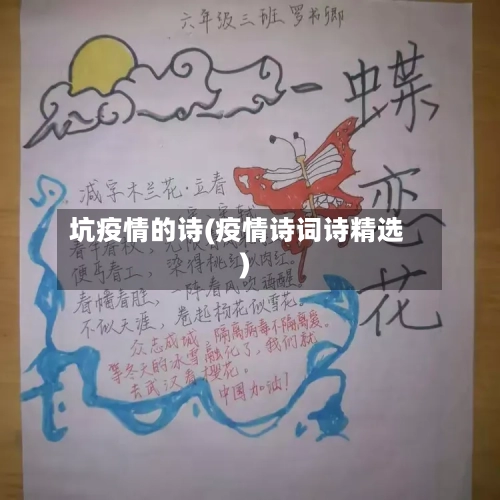 六年级三班 罗
蝶恋花
减字木兰花·立春
坑疫情的诗(疫情诗词诗精选
)
便寻春工，染得桃红似肉红。
春幡春胜，一阵春风吹酒醒。
不似天涯，卷起杨花似雪花。
众志成城，隔离病毒不隔离爱。
等冬天的冰雪融化了，我们就
去武汉看樱花。
中国加油！